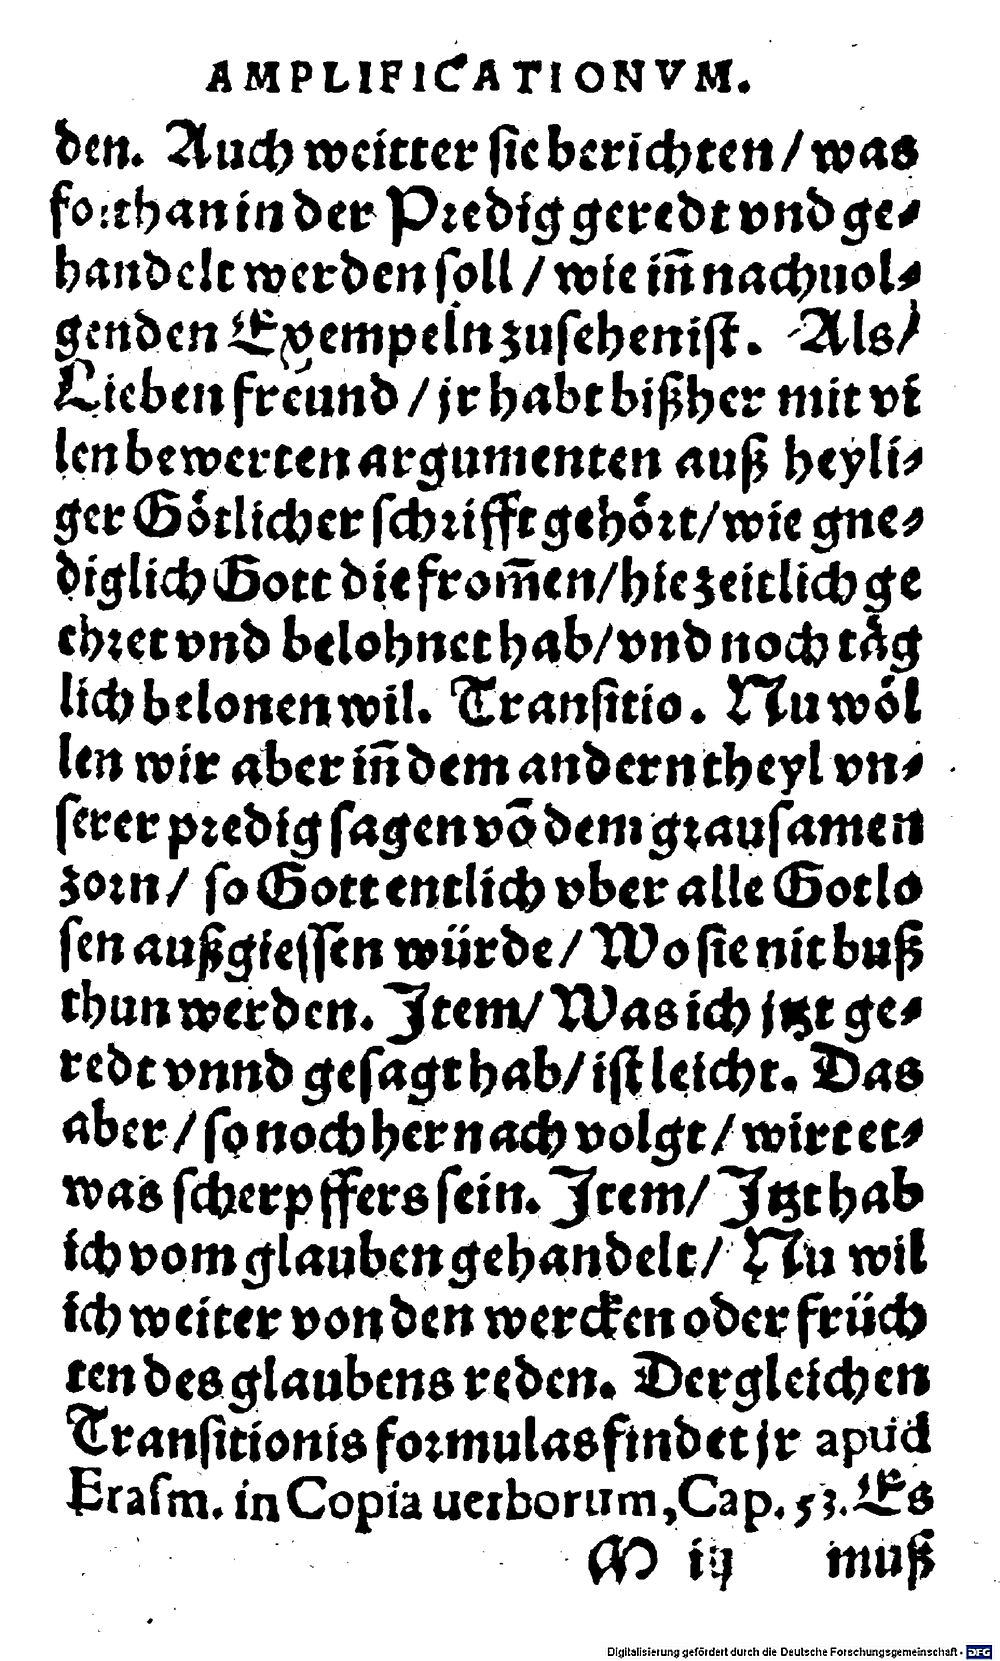 AMPLIFICATIONVM.
den. Auch weitter sie berichten / was
forthan in der Predig geredt vnd ge⸗
handelt werden soll / wie iñ nachuol⸗
genden Exempeln zusehen ist. Als /
Lieben freund / jr habt bißher mit vi
len bewerten argumenten auß heyli⸗
ger Gőtlicher schrifft gehőrt / wie gne⸗
diglich Gott die from̃en / hie zeitlich ge
ehret vnd belohnet hab / vnd noch tåg
lich belonen wil. Transitio. Nu wől
len wir aber iñ dem andern theyl vn⸗
serer predig sagen võ dem grausamen
zorn / so Gott entlich vber alle Gotlo
sen außgiessen würde / Wo sie nit buß
thun werden. Item / Was ich jtzt ge⸗
redt vnnd gesagt hab / ist leicht. Das
aber / so noch hernach volgt / wirt et⸗
was scherpffers sein. Item / Itzt hab
ich vom glauben gehandelt / Nu wil
ich weiter von den wercken oder früch
ten des glaubens reden. Dergleichen
Transitionis formulas findet jr apud
Erasm. in Copia uerborum, Cap. 53. Es
M iij muß
Digitalisierung gefördert durch die Deutsche Forschungsgemeinschaft - DFG